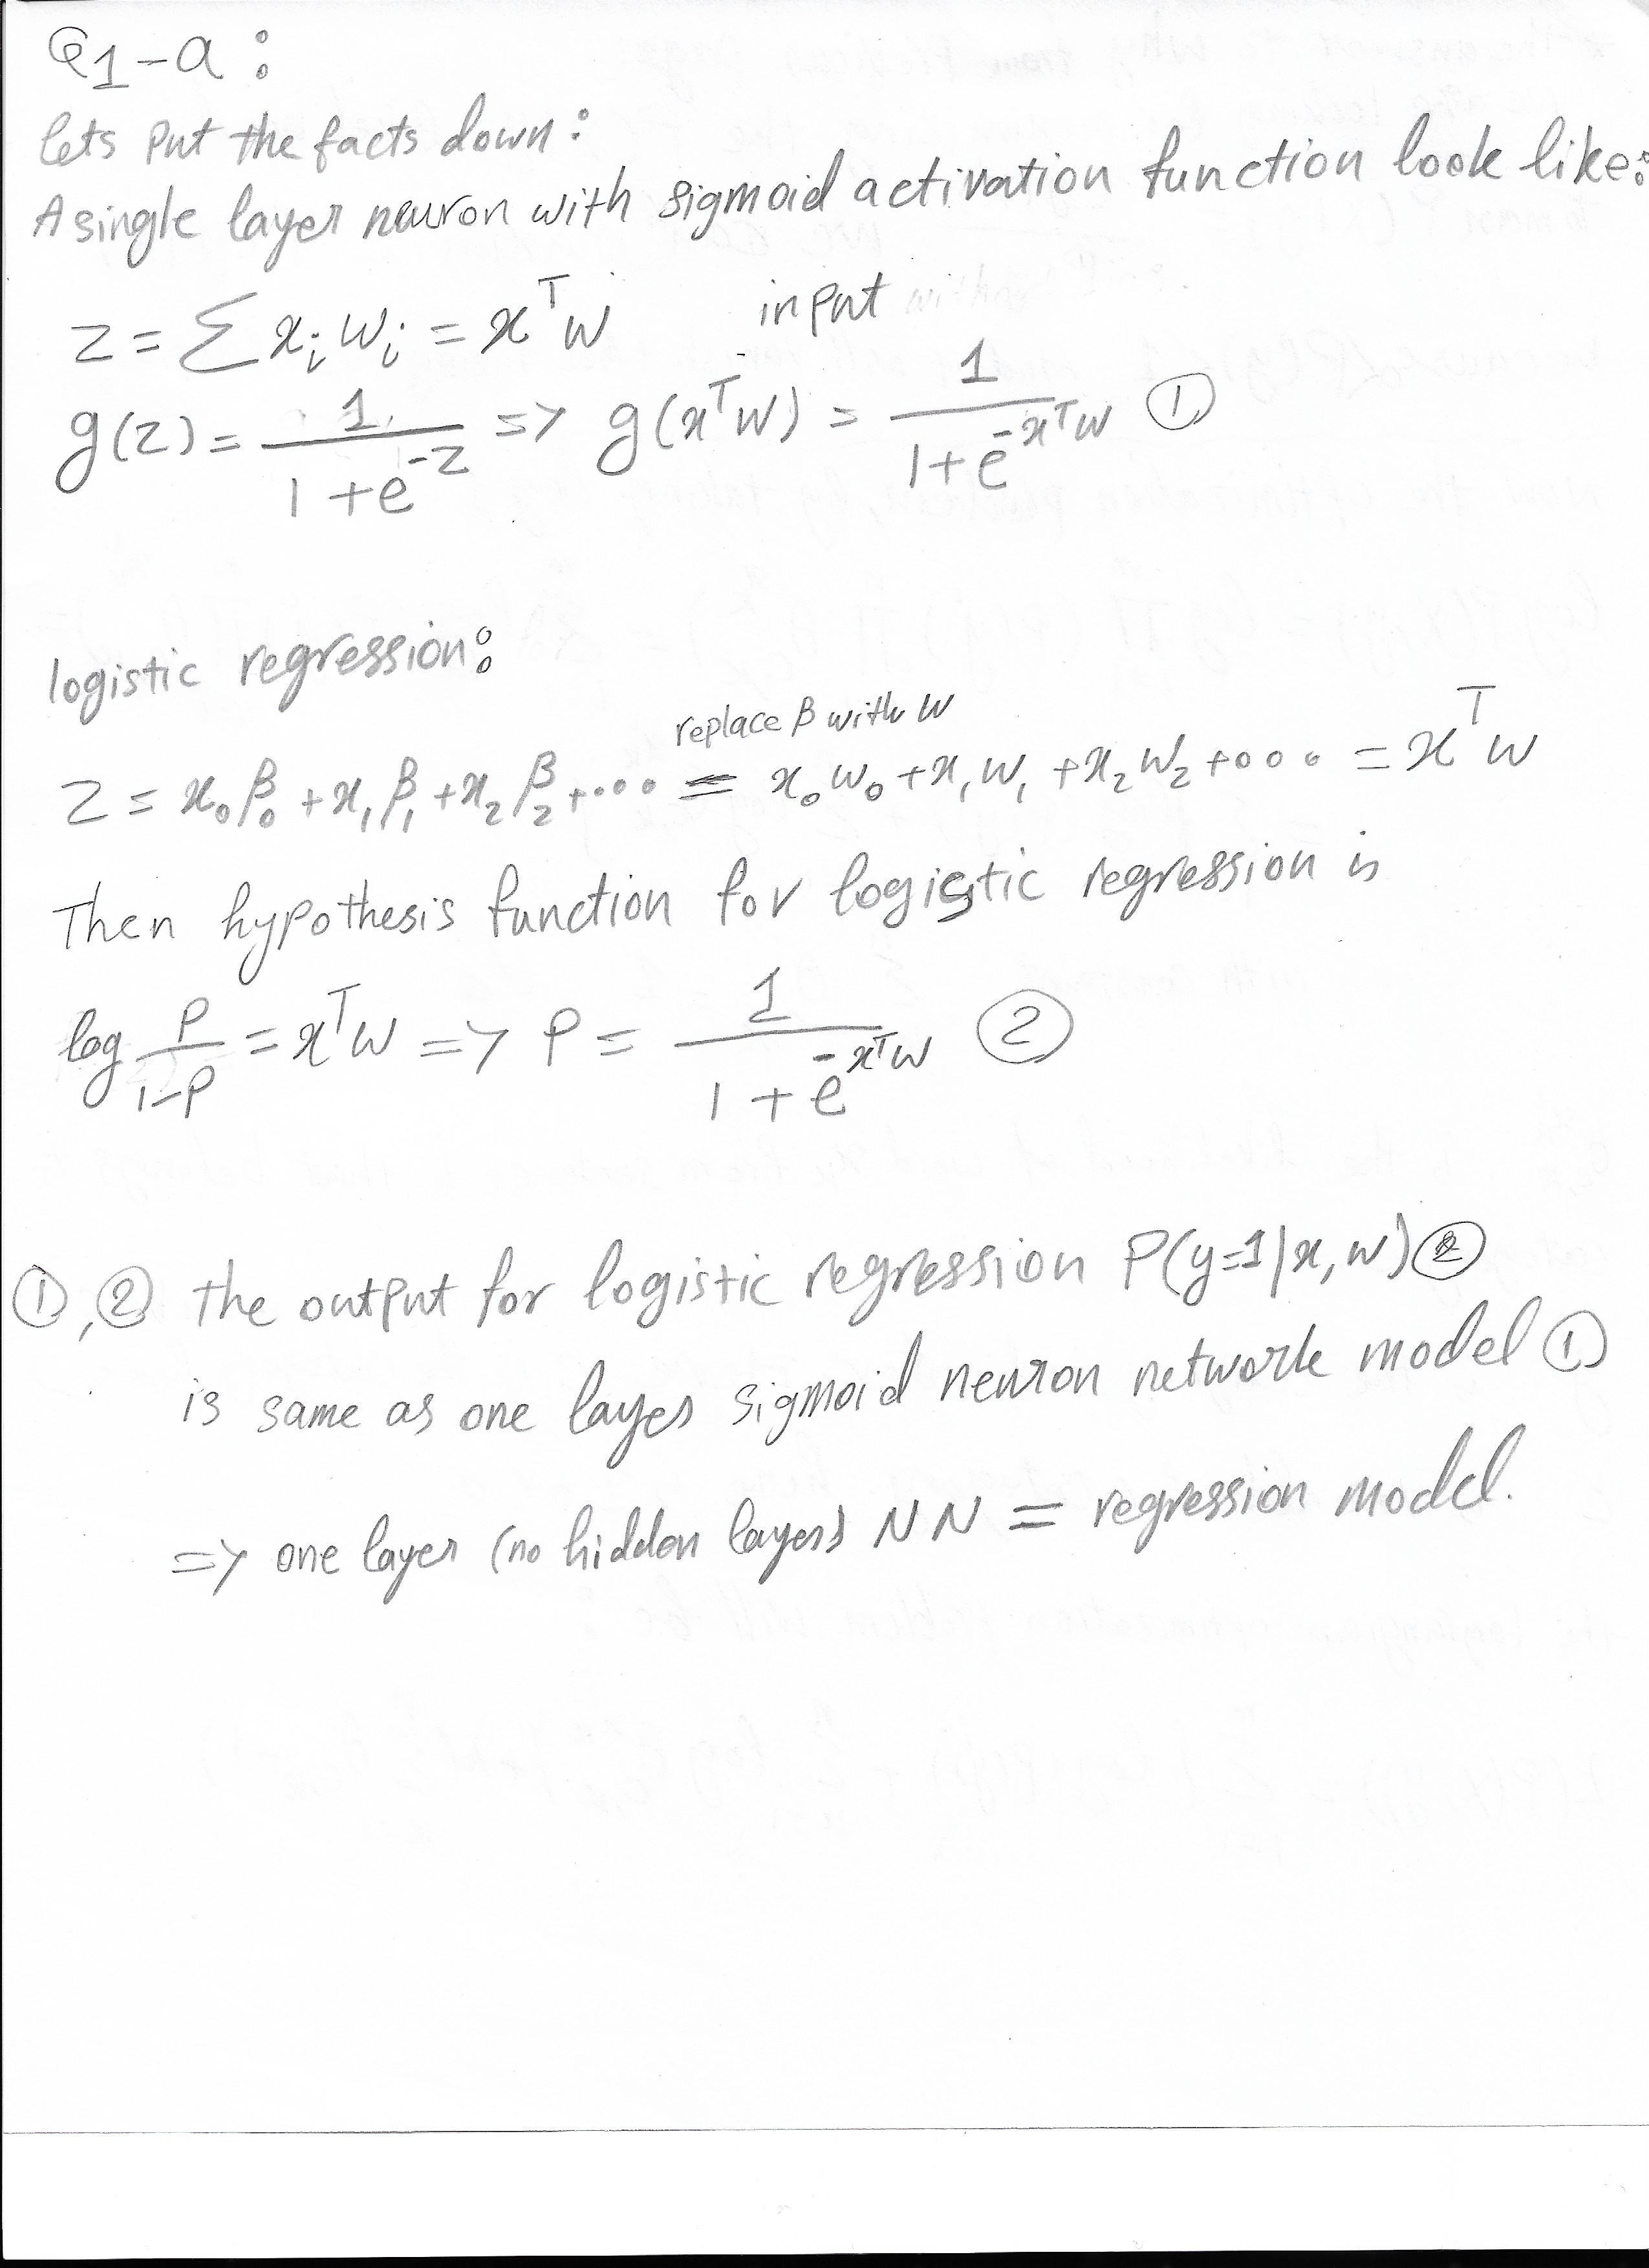 Q1-a:
lets put the facts down:
A single layer neuron with sigmoid activation function look like:
z = Σ xᵢ wᵢ = xᵀw input
g(z) = 1 / (1 + e^(-z)) => g(xᵀw) = 1 / (1 + e^(-xᵀw)) ①
logistic regression:
replace β with w
z = x₀β₀ + x₁β₁ + x₂β₂ + ... = x₀w₀ + x₁w₁ + x₂w₂ + ... = xᵀw
Then hypothesis function for logistic regression is
log p/(1-p) = xᵀw => p = 1 / (1 + e^(-xᵀw)) ②
①,② the output for logistic regression P(y=1|x,w) ②
is same as one layer sigmoid neuron network model ①
=> one layer (no hidden layers) NN = regression model.